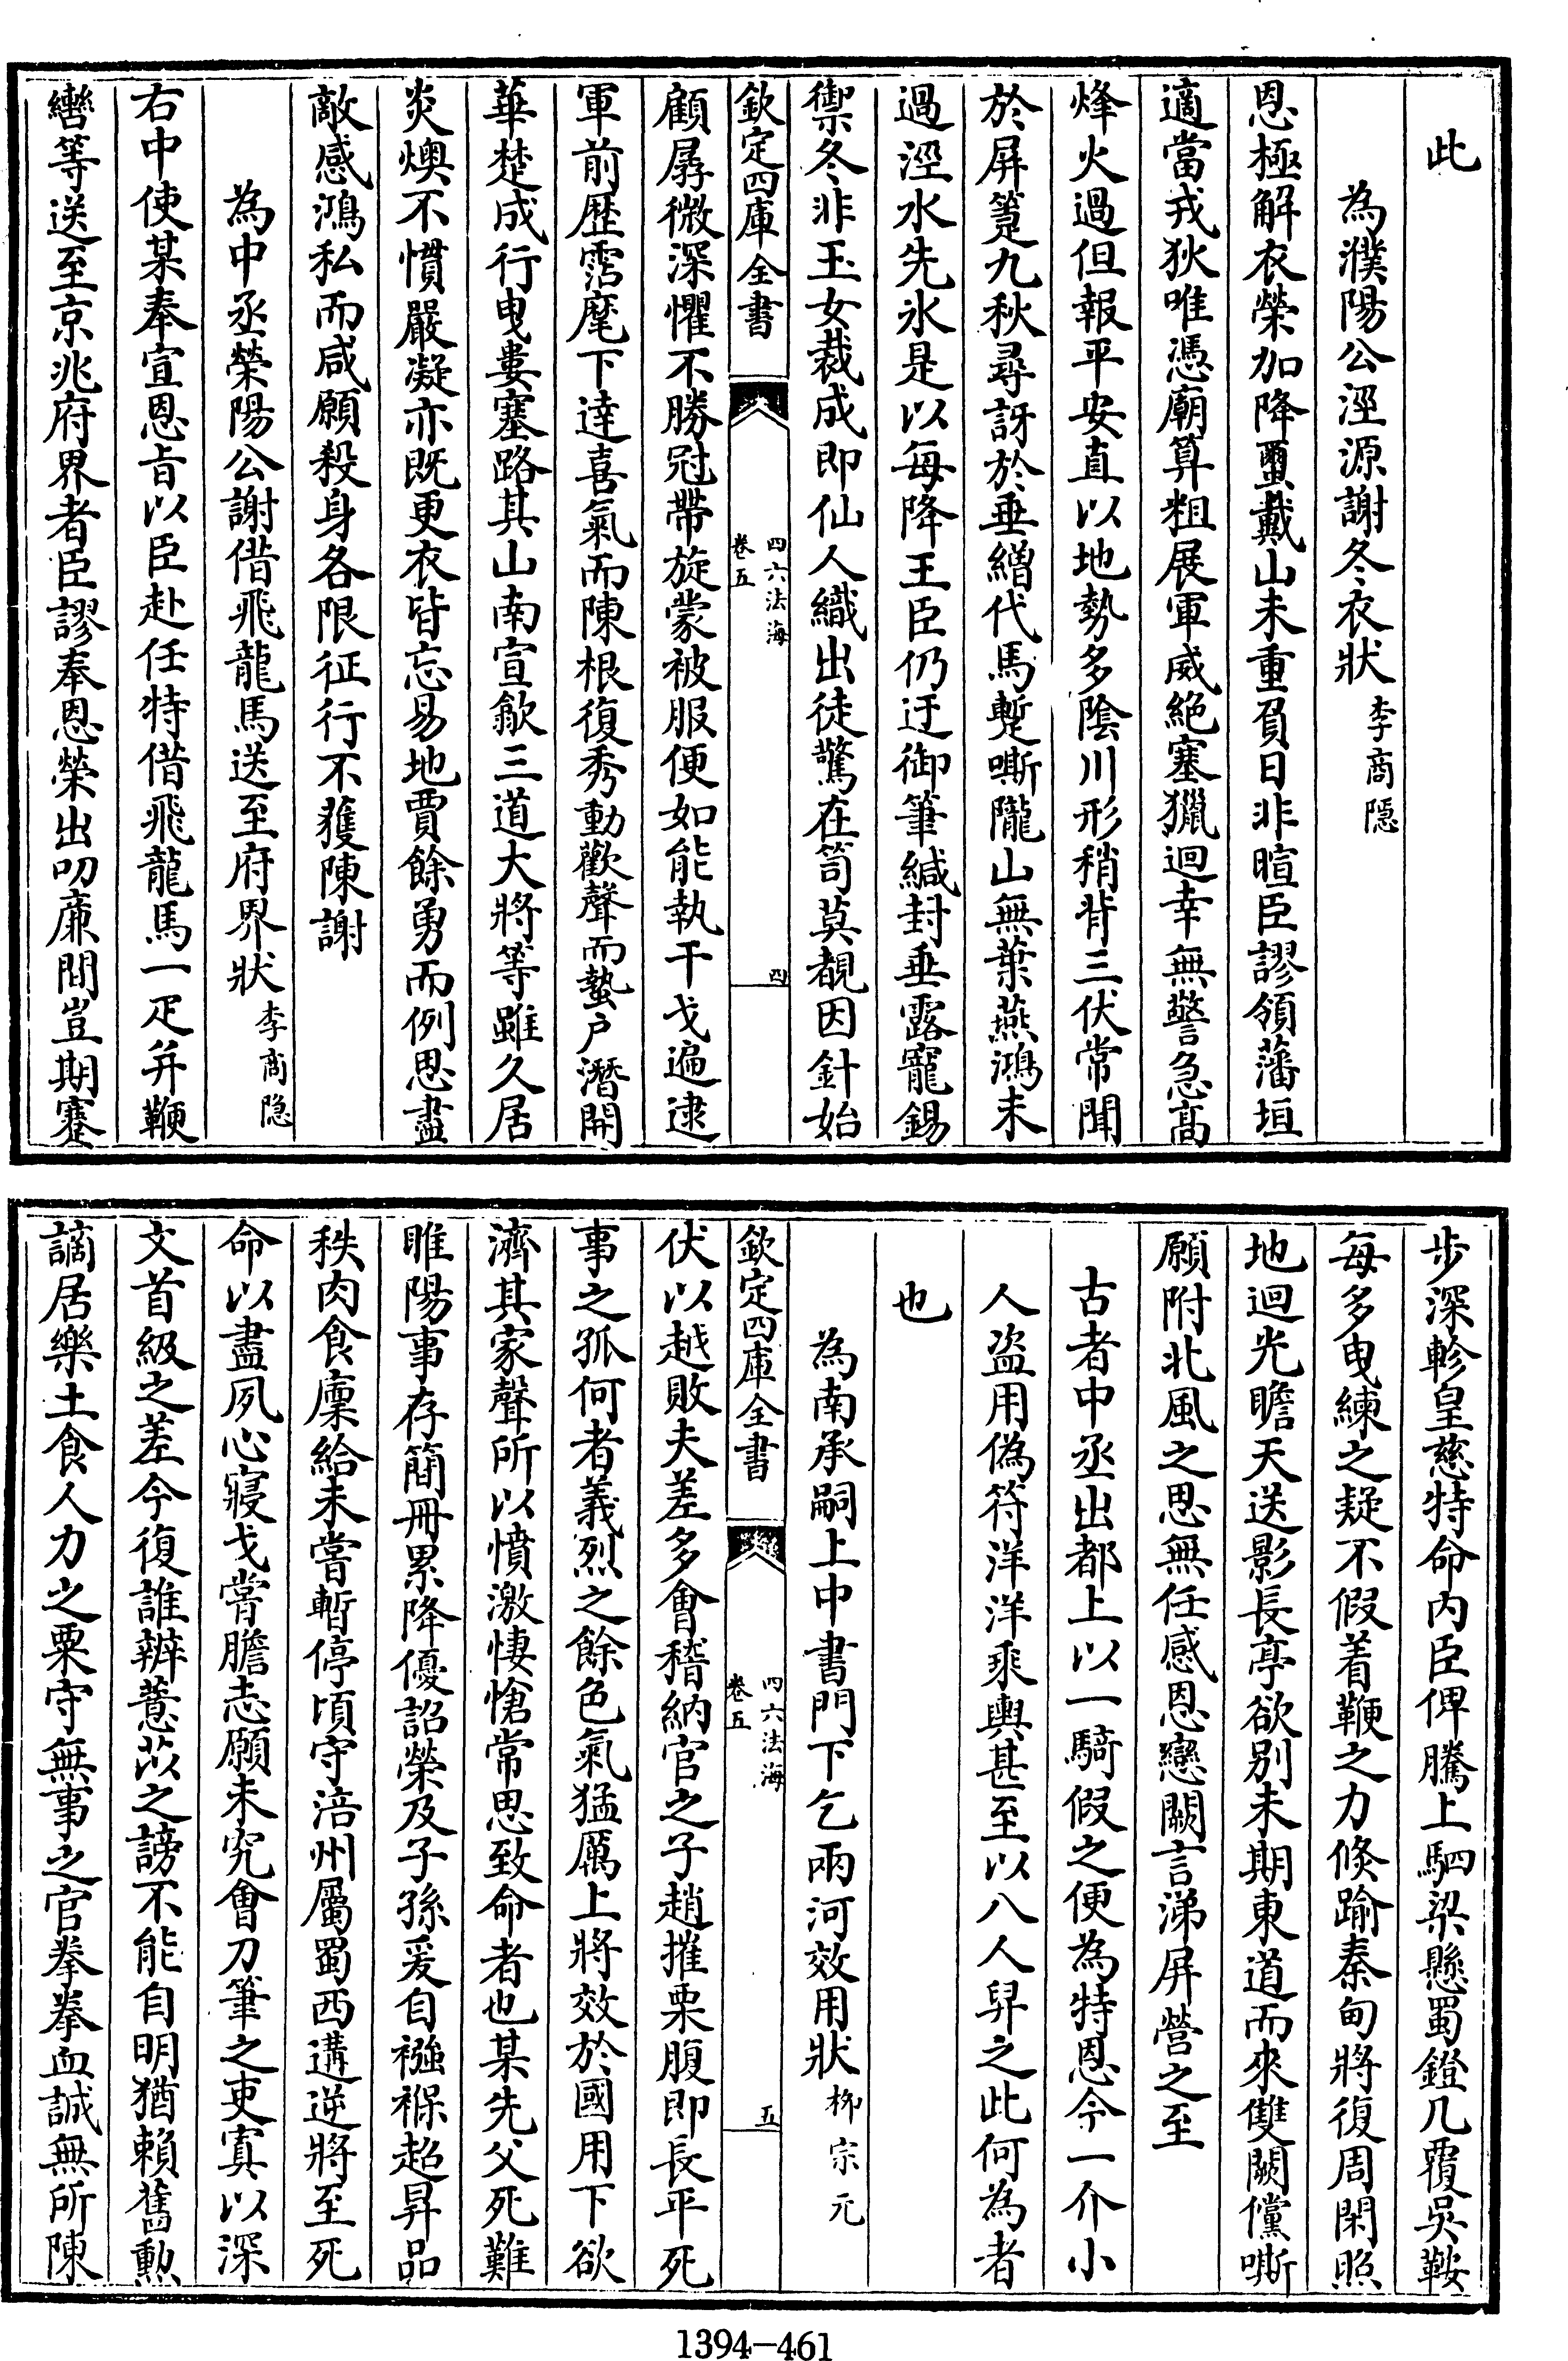 此
為濮陽公涇源謝冬衣狀 李商隱
恩極解衣榮加降璽戴山未重負日非暄臣謬領藩垣
適當戎狄唯憑廟算粗展軍威絕塞獵迴幸無警急高
烽火過但報平安直以地勢多陰川形稍背三伏常聞
於屏箑九秋尋訝於垂繒代馬蹔嘶隴山無葉燕鴻未
過涇水先氷是以每降王臣仍迂御筆緘封垂露寵錫
禦冬非玉女裁成即仙人織出徒驚在笥莫覩因針始
欽定四庫全書
四六法海
卷五
四
顧孱微深懼不勝冠帶旋蒙被服便如能執干戈遍逮
軍前歷霑麾下達喜氣而陳根復秀動歡聲而蟄户潛開
華楚成行曳婁塞路其山南宣歙三道大將等雖久居
炎燠不慣嚴凝亦既更衣皆忘易地賈餘勇而例思盡
敵感鴻私而咸願殺身各限征行不獲陳謝
為中丞榮陽公謝借飛龍馬送至府界狀 李商隱
右中使某奉宣恩旨以臣赴任特借飛龍馬一疋并鞭
轡等送至京兆府界者臣謬奉恩榮出叨亷問豈期蹇
步深軫皇慈特命内臣俾騰上駟梁懸蜀鐙几覆吳鞍
每多曳練之疑不假着鞭之力倐踰秦甸將復周閑照
地迴光瞻天送影長亭欲别未期東道而來雙闕儻嘶
願附北風之思無任感恩戀闕言涕屏營之至
古者中丞出都上以一騎假之便為特恩今一介小
人盜用偽符洋洋乘輿甚至以八人舁之此何為者
也
為南承嗣上中書門下乞兩河效用狀 栁宗元
欽定四庫全書
四六法海
卷五
五
伏以越敗夫差多會稽納官之子趙摧栗腹即長平死
事之孤何者義烈之餘色氣猛厲上將效於國用下欲
濟其家聲所以憤激悽愴常思致命者也某先父死難
睢陽事存簡冊累降優詔榮及子孫爰自襁褓超昇品
秩肉食廩給未嘗暫停頃守涪州屬蜀西遘逆將至死
命以盡夙心寢戈嘗膽志願未究會刀筆之吏寘以深
文首級之差今復誰辨薏苡之謗不能自明猶賴舊勲
謫居樂土食人力之粟守無事之官拳拳血誠無所陳
1394-461